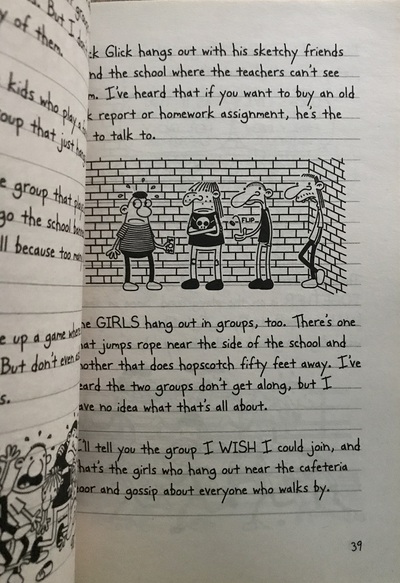 . But I
y of them.
kids who play a
oup that just
e group that
go the school
ll because too many
e up a game where
But don't even
s.
Glick hangs out with his sketchy friends
nd the school where the teachers can't see
m. I've heard that if you want to buy an old
k report or homework assignment, he's the
to talk to.
FLIP
he GIRLS hang out in groups, too. There's one
hat jumps rope near the side of the school and
nother that does hopscotch fifty feet away. I've
eard the two groups don't get along, but I
ave no idea what that's all about.
'll tell you the group I WISH I could join, and
hat's the girls who hang out near the cafeteria
oor and gossip about everyone who walks by.
39